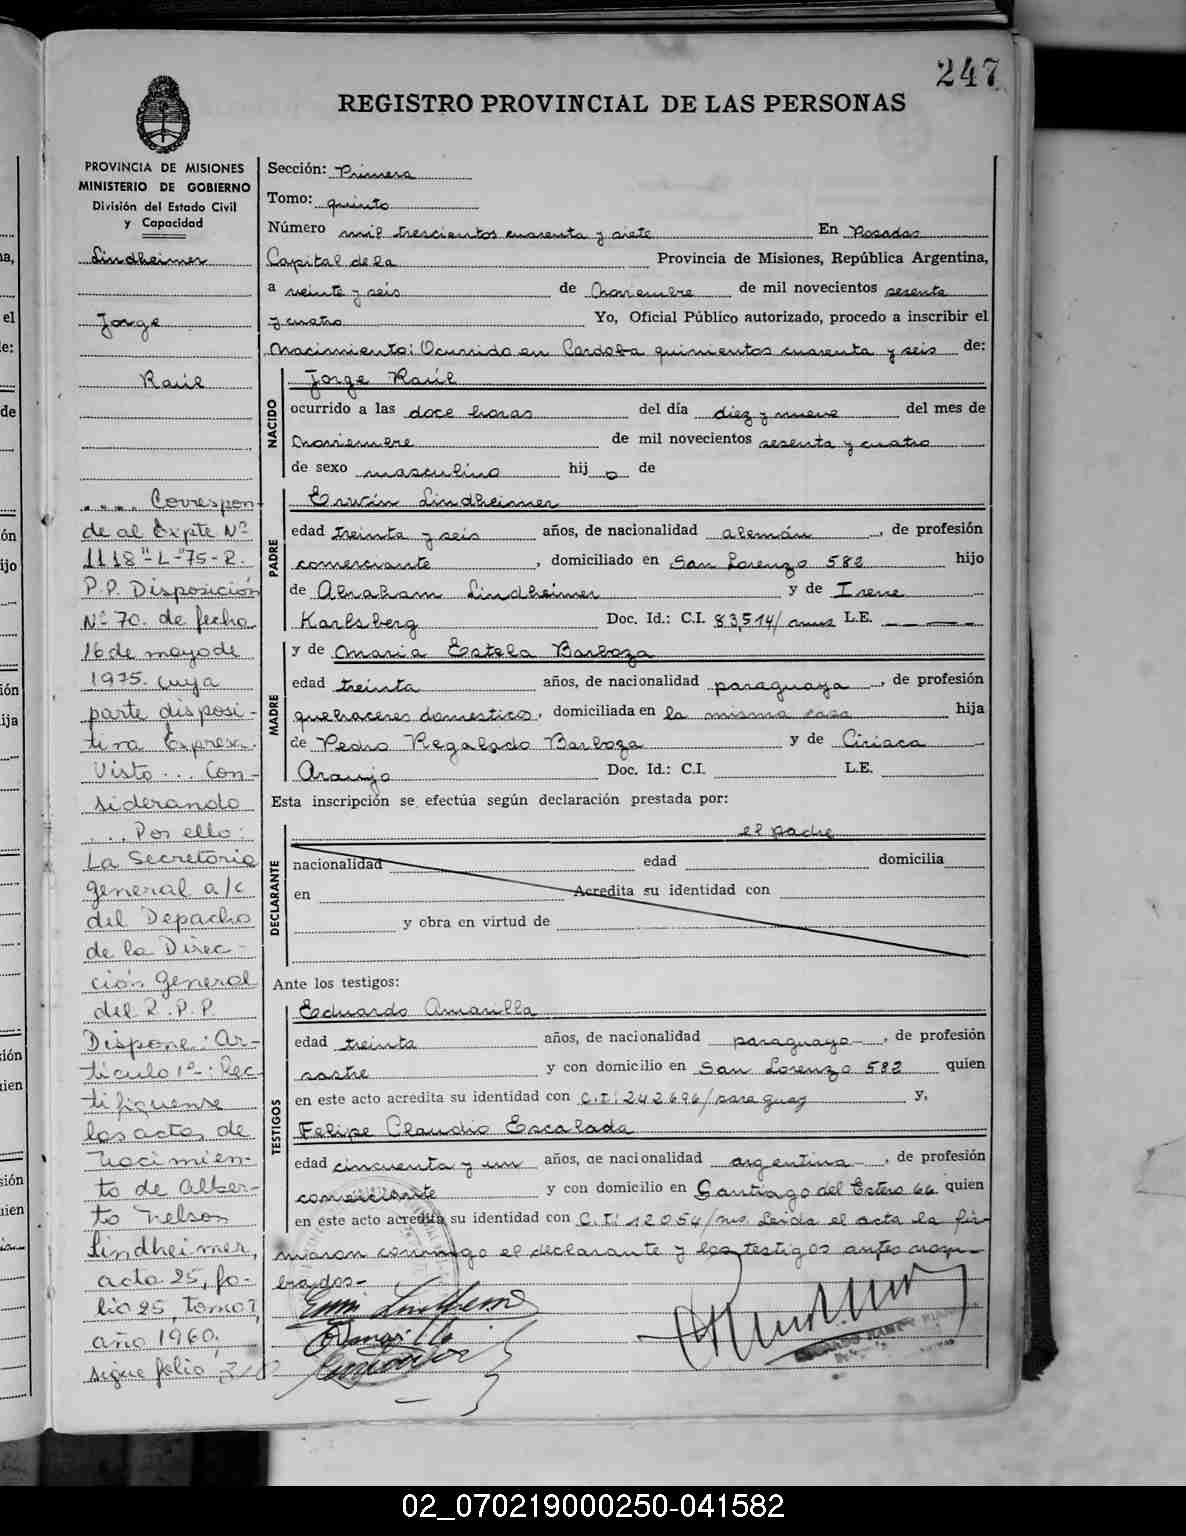 247
REGISTRO PROVINCIAL DE LAS PERSONAS
PROVINCIA DE MISIONES
MINISTERIO DE GOBIERNO
División del Estado Civil
y Capacidad
Lindheimer
Jorge
Raúl
.... Correspon-
de al Expte Nº
1118"-L-"75-R.
P.P. Disposición
Nº 70. de fecha
16 de mayo de
1975. cuya
parte disposi-
tiva Expresa.
Visto... Con-
siderando
... Por ello:
La Secretaria
general a/c
del Depacho
de la Direc-
ción General
del R.P.P.
Dispone: Ar-
tículo 1º-: Rec-
tifiquense
las actas de
nacimien-
to de Alber-
to Nelson
Lindheimer,
acta 25, fo-
lio 25, tomo I,
año 1960,
sigue folio
Sección: Primera
Tomo: quinto
Número mil trescientos cuarenta y siete En Posadas
Capital de la Provincia de Misiones, República Argentina,
a veinte y seis de Noviembre de mil novecientos sesenta
y cuatro Yo, Oficial Público autorizado, procedo a inscribir el
Nacimiento: Ocurrido en Cordoba quinientos cuarenta y seis de:
NACIDO
Jorge Raúl
ocurrido a las doce horas del día diez y nueve del mes de
Noviembre de mil novecientos sesenta y cuatro
de sexo masculino hij o de
PADRE
Erwin Lindheimer
edad treinta y seis años, de nacionalidad alemán, de profesión
comerciante, domiciliado en San Lorenzo 582 hijo
de Abraham Lindheimer y de Irene
Karlsberg Doc. Id.: C.I. 83,514/ L.E. ————
y de Maria Estela Barboza
MADRE
edad treinta años, de nacionalidad paraguaya, de profesión
quehaceres domesticos, domiciliada en la misma casa hija
de Pedro Regalado Barboza y de Ciriaca
Araujo Doc. Id.: C.I. L.E.
Esta inscripción se efectúa según declaración prestada por:
el padre
DECLARANTE
nacionalidad edad domicilia
en Acredita su identidad con
y obra en virtud de
Ante los testigos:
TESTIGOS
Eduardo Amarilla
edad treinta años, de nacionalidad paraguayo, de profesión
sastre y con domicilio en San Lorenzo 582 quien
en este acto acredita su identidad con C.I: 242696/paraguay y,
Felipe Claudio Escalada
edad cincuenta y un años, de nacionalidad argentina, de profesión
comerciante y con domicilio en Santiago del Estero 66 quien
en este acto acredita su identidad con C.I: 12054/ms. Leida el acta la fir-
maron conmigo el declarante y los testigos antes
02_070219000250-041582